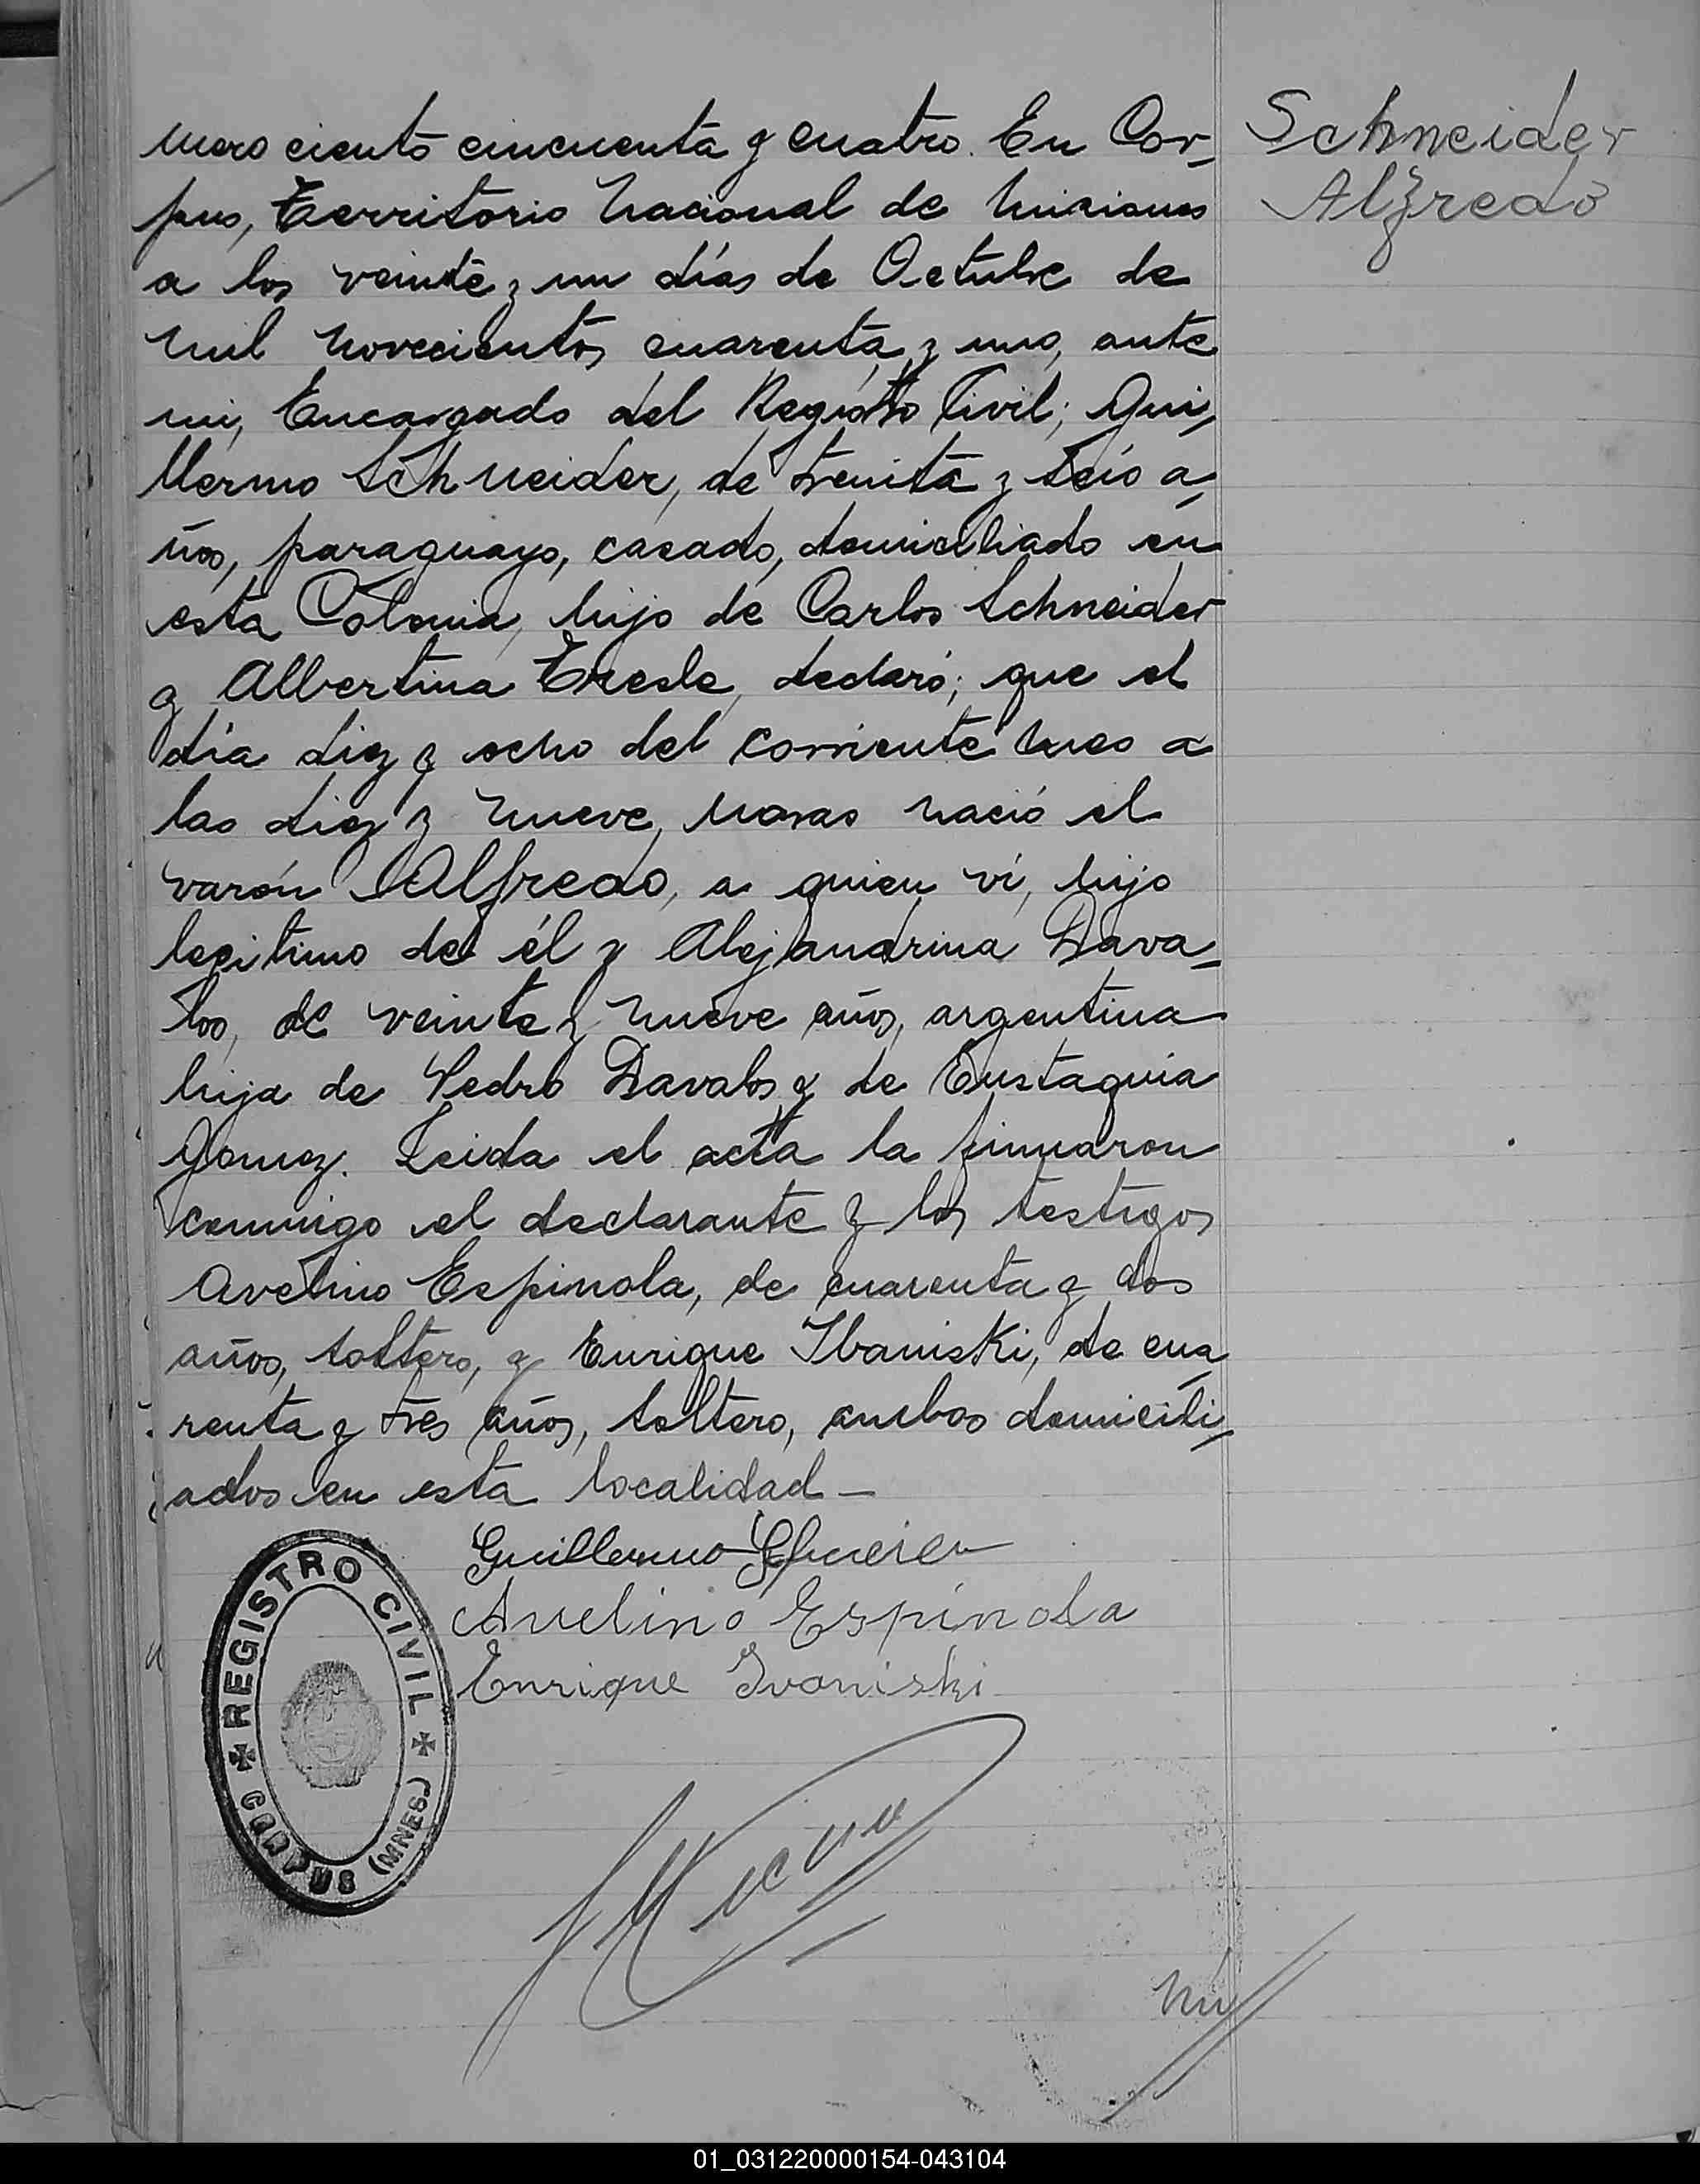 mero ciento cincuenta y cuatro. En Cor-
pus, Territorio Nacional de Misiones
a los veinte y un días de Octubre de
mil novecientos cuarenta y uno, ante
mi, Encargado del Registro Civil; Gui-
llermo Schneider, de treinta y seis a-
ños, paraguayo, casado, domiciliado en
esta Colonia, hijo de Carlos Schneider
y Albertina declaró; que el
día diez y ocho del corriente mes a
las diez y nueve horas nació el
varón Alfredo, a quien ví, hijo
legitimo de él y Alejandrina Dava-
los, de veinte y nueve años, argentina
hija de Pedro Davalos y de Eustaquia
Gomez. Leida el acta la firmaron
conmigo el declarante y los testigos
Avelino Espinola, de cuarenta y dos
años, soltero, y Enrique Ibaniski, de cua-
renta y tres años, soltero, ambos domicili-
ados en esta localidad -
Schneider
Alfredo
Guillermo
Avelino Espínola
Enrique Ivaniski
REGISTRO CIVIL
CORPUS (MNES)
nú
01_031220000154-043104